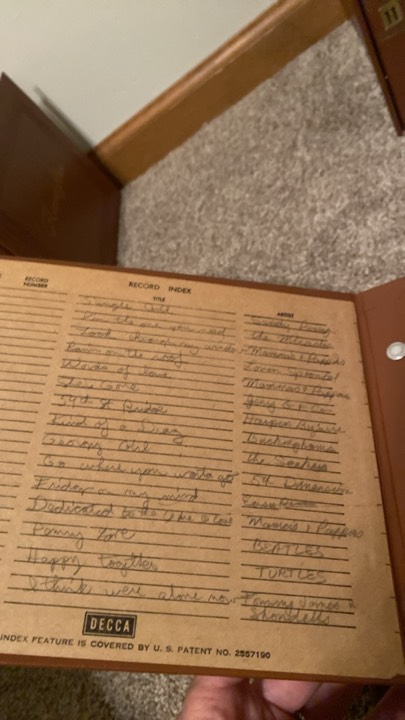 11
RECORD NUMBER
RECORD INDEX
TITLE
ARTIST
Single Girl Sandy Posey
the one you the Miracles
Look through my window Mamas & Pappas
Rain on the roof Lovin Spoonful
Words of love Mammas & Pappas
She's Gone Jerry &
59th St Bridge Harpers Bizarre
Kind of a Drag Buckinghams
Georgy Girl the Seekers
Go where you wanta go 5th Dimension
Friday on my mind Easy
Dedicated to the I love Mamas & Pappas
Penny Lane BEATLES
Happy together TURTLES
I think were alone now Tommy James &
Shondells
DECCA
INDEX FEATURE IS COVERED BY U. S. PATENT NO. 2557190